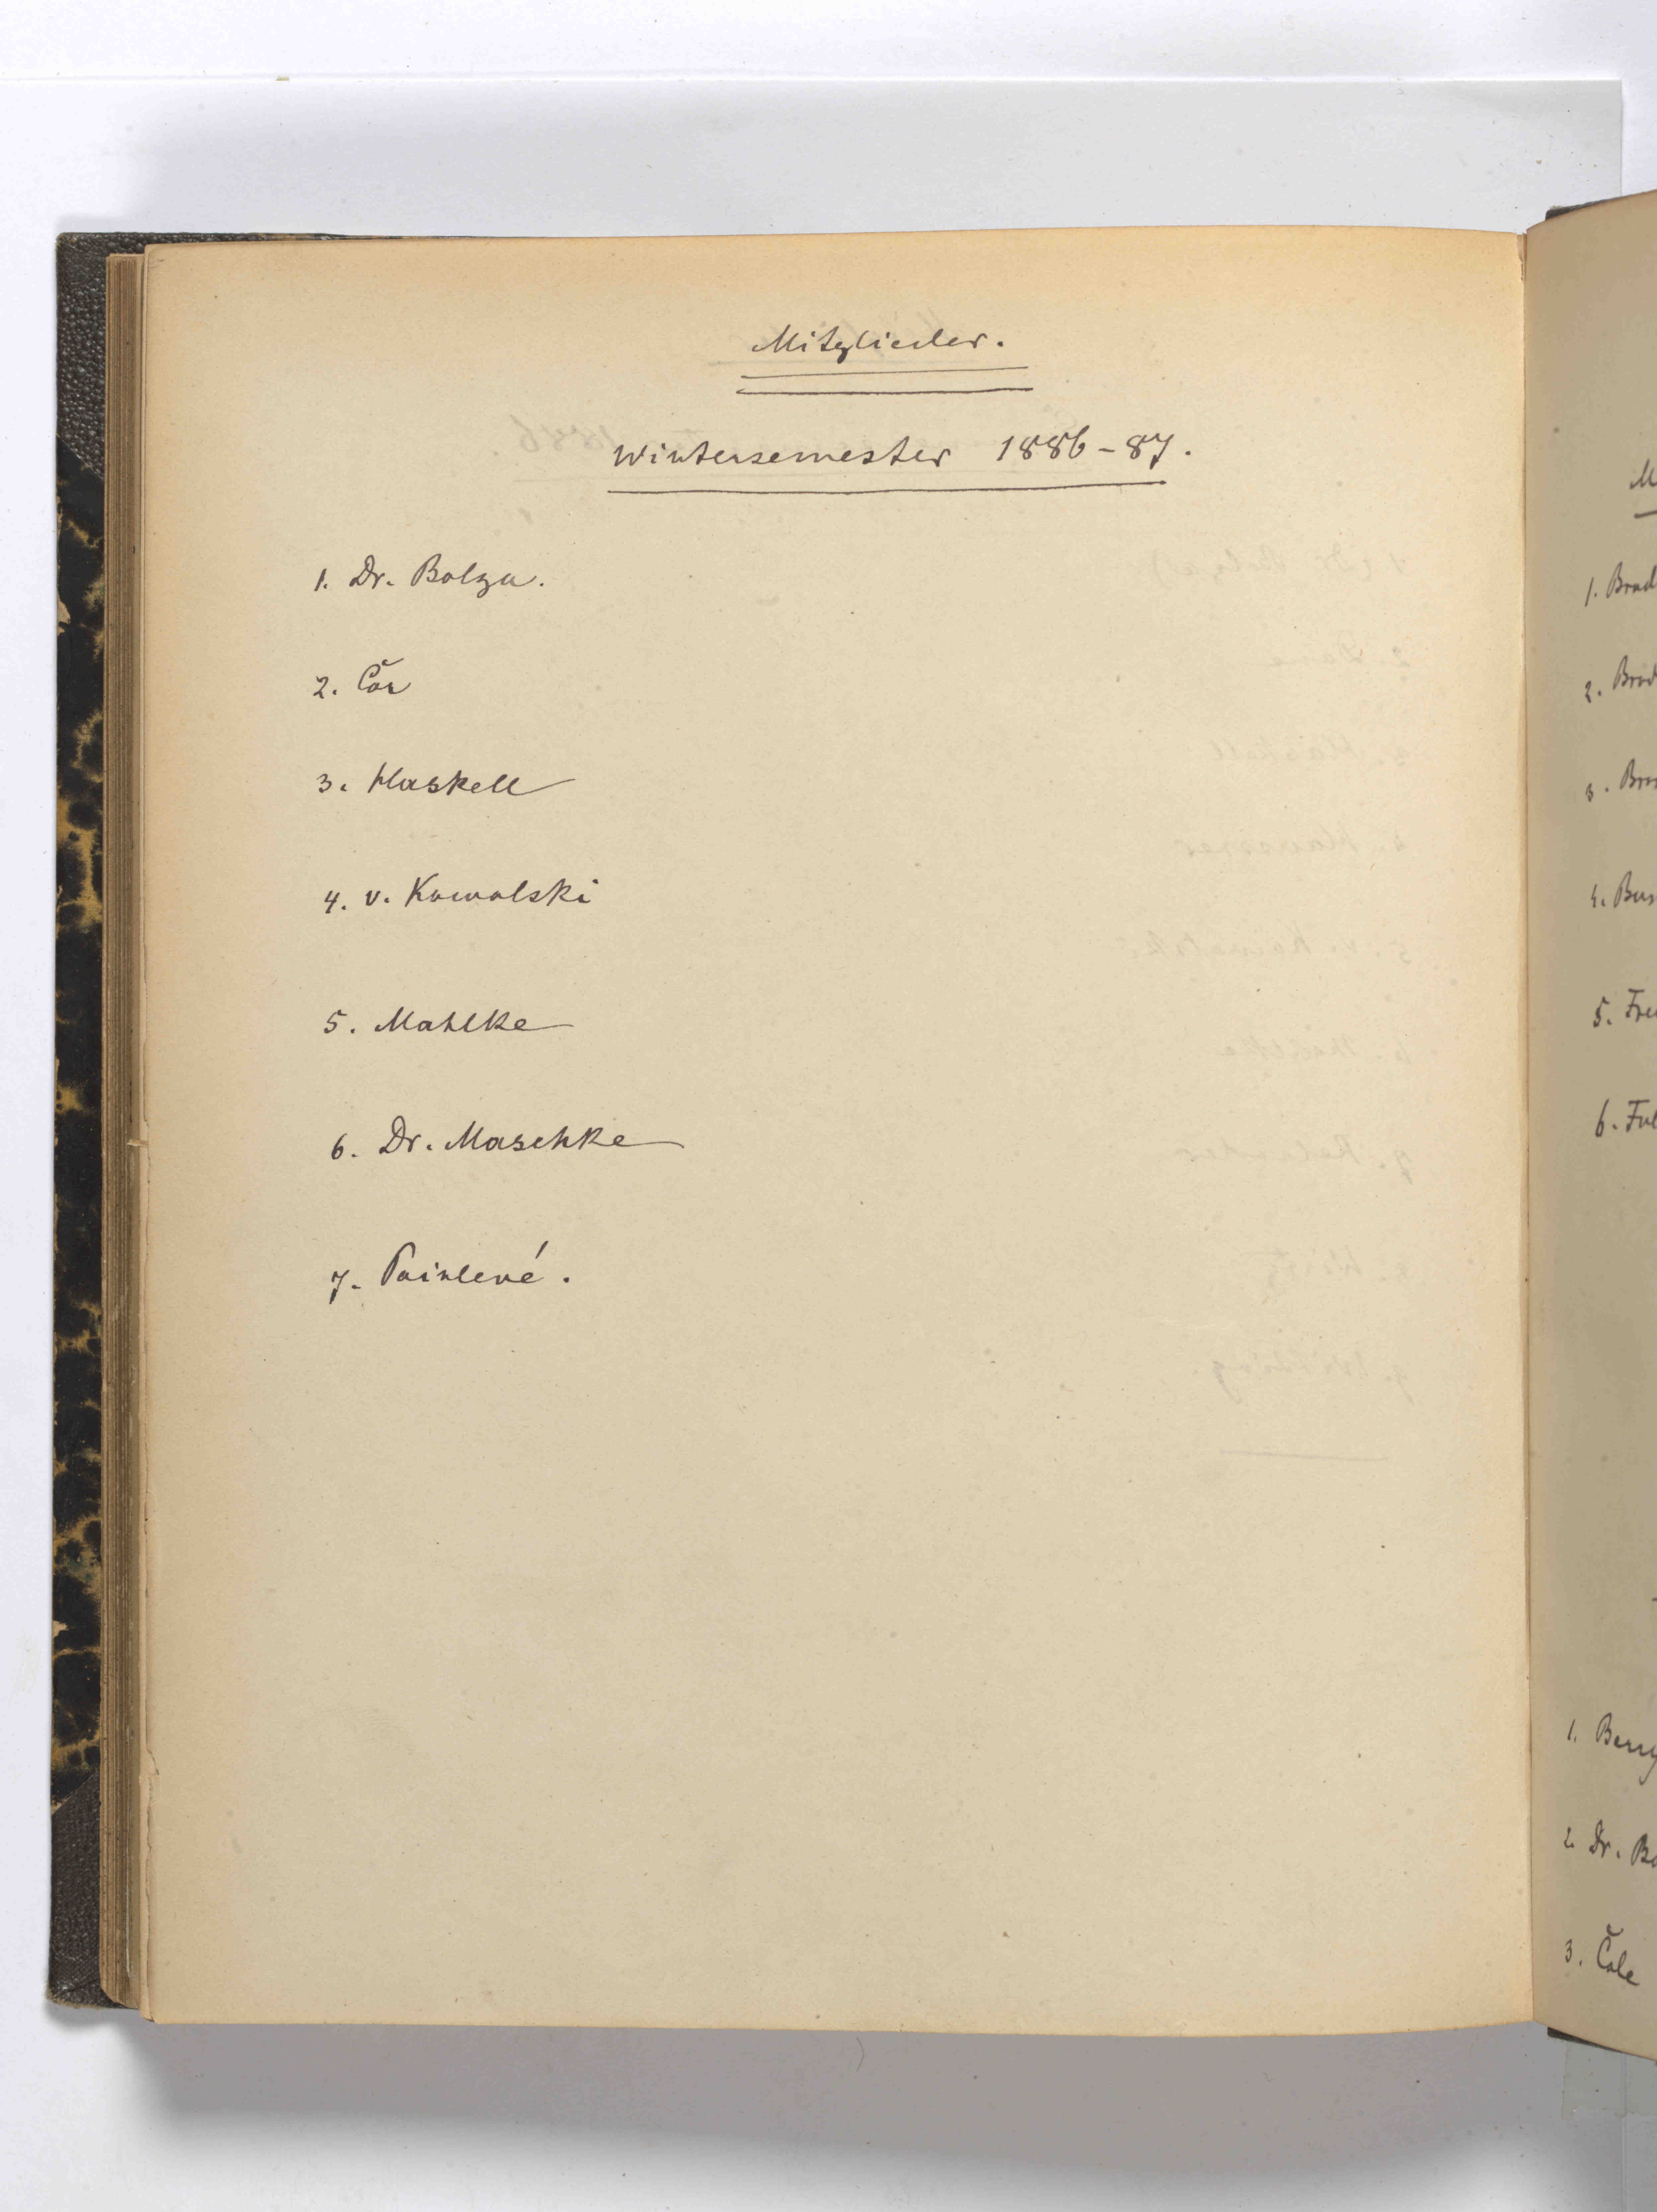 Mitglieder.
Wintersemester 1886-87.
1. Dr. Bolza.
2. Čor
3. Haskell
4. v. Kowalski
5. Mahlke
6. Dr. Maschke
7. Painlevé.
1. Brad
2.
3.
4.
5.
6.
1. Berry
2. Dr. Bo
3. Čole